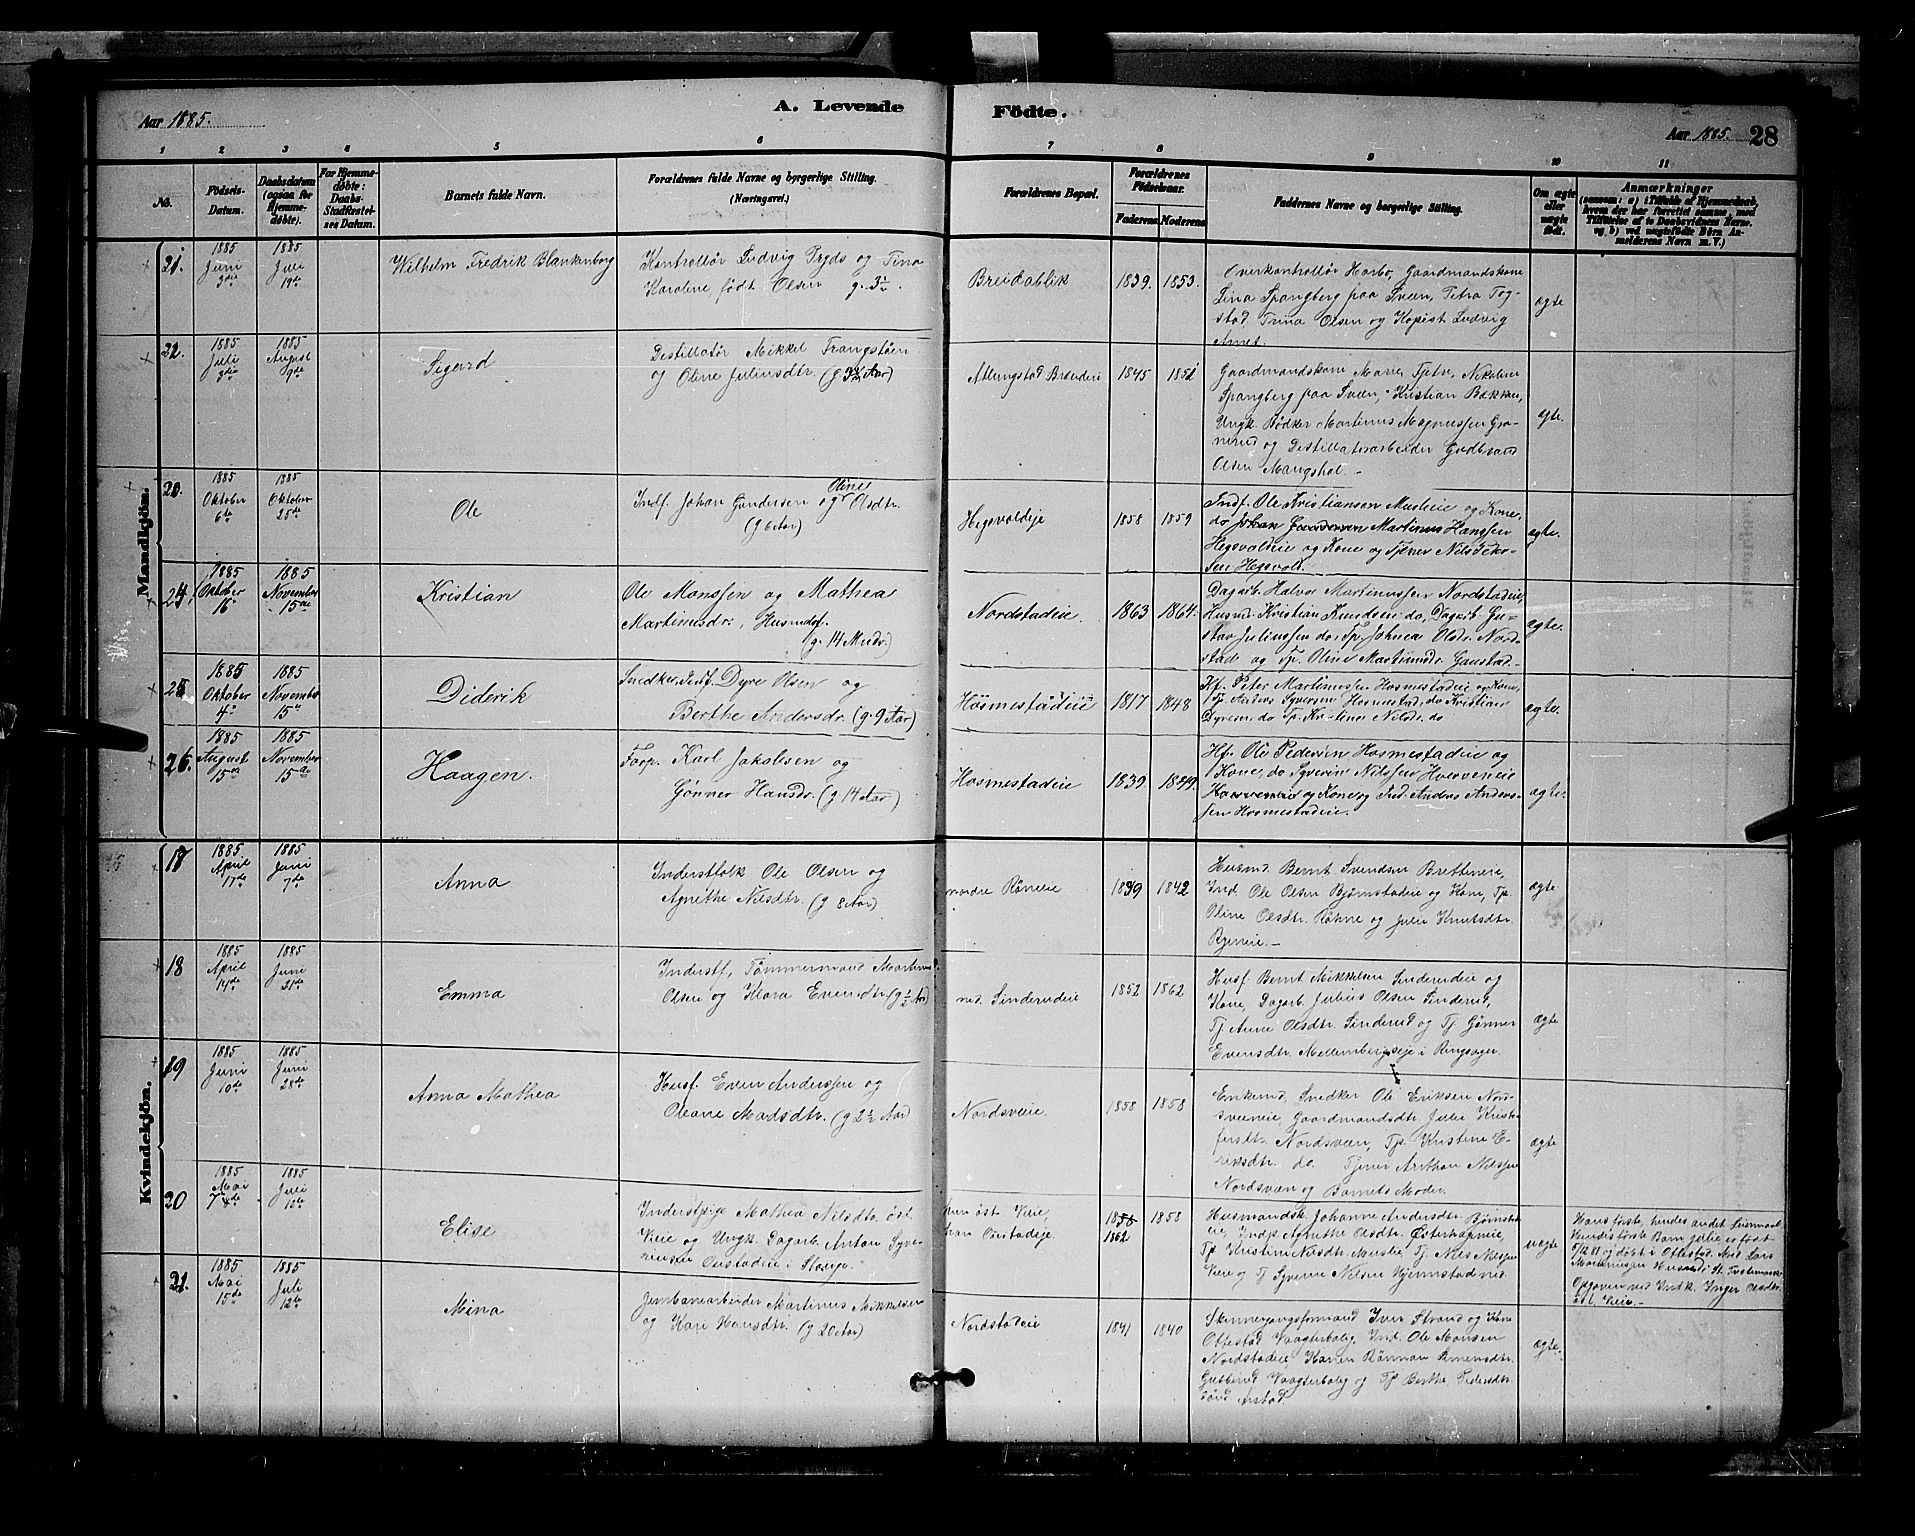 A. Levende Födte.
Aar 1885.
Aar 1885. 28
1 2 3 4 5 6 7 8 9 10 11
No.
Fødsels-
Datum.
Daabsdatum
(ogsaa for
Hjemme-
døbte).
For Hjemme-
døbte:
Daabs-
Stadfæstel-
ses Datum.
Barnets fulde Navn.
Forældrenes fulde Navne og borgerlige Stilling.
(Næringsvei.)
Forældrenes Bopæl.
Forældrenes
Fødselsaar.
Faderens. Moderens.
Faddernes Navne og borgerlige Stilling.
Om ægte
eller
uægte
født.
Anmærkninger
Mandkjön.
21.
1885
Juni
3die
1885
Juli
19de
Wilhelm Fredrik Blankenborg
Kontrollør Ludvig Pryds og Tina
Karoline, født Olsen g. 3½.
Breidablik
1839. 1853.
Overkontrollør Harbo, Gaardmandskone
Lina Spangberg paa Sveen, Petra Tog-
stad. Trina Olsen og Kopist Ludvig
ægte
22.
1885
Juli
3die
1885
August
9de
Sigard
Destillatør Mikkel Frangstøen
og Oline Juliusdtr. (g 3½ Aar)
Atlungstad Brænderi
1845 1851
Gaardmandskone Marie Nikoline
Spangberg paa Sveen, Kristian Bakken,
Ungk. Bødker Martinus Magnussen Gra-
nerud og Destillatørarbeider Gudbrand
Olsen Mangshol
ægte.
1885
Oktober
6te
1885
Oktober
25de
Ole
Indf. Johan Gundersen og Oline Olsdtr.
(g 6 Aar)
Hegsvoldeje
1858 1859
Indf. Ole Kristiansen Muslieie og Kone,
do Johan Gundersen Martinus Hanssen
Hegsvoldeie og Kone og Tjener Nils Peder-
sen Hegsvold.
ægte.
24.
1885
Oktober
16
1885
November
15de
Kristian
Ole Monssen og Mathea
Martinusdr., Husmdsf.
(g. 14 Mndr.)
Nordstadeie.
1863 1864.
Dagarb. Halvor Martinussen Nordstadeie,
Husmd. Kristian Knudsen do, Dagarb. Gu-
stav Julinssen do, Tp. Johnea Olsdr. Nord-
stad og Tp. Oline Martinusdr. Gaustad.
ægte.
25
1885
Oktober
4de
1885
November
15de
Diderik
Snedker, Indf. Dyre Olsen og
Berthe Andersdr. (g. 9 Aar)
Hosmestadeie
1817 1848
Hf. Peter Martinussen Hosmestadeie og Kone,
Tj. Anders Syversen Hosmestad, do Kristian
Dyresen do Tp. Kristine Nilsdr. do
ægte.
26.
1885
August
15de
1885
November
15de
Haagen.
Forp. Karl Jakobsen og
Gønner Hansdr. (g 14 Aar)
Hosmestadeie
1839 1849.
Hf. Ole Pedersen Hosmestadeie og
Kone, do Syverin Nilssen Hverveneie
og Kone og Ind. Anders Anders-
sen Hosmestadeie.
ægte.
Kvindekjön.
17
1885
April
17de
1885
Juni
7de
Anna
Inderstfolk Ole Olsen og
Agnethe Nilsdtr. (g 8 Aar)
nordre Røneeie
1839 1842
Husmd. Bernt Svendsen Bretteneie,
Ind. Ole Olsen Bjørnstadeie og Kone, Tp
Oline Olsdtr. Røhne og Julie Knutsdtr.
Ryeneie.
ægte
18
1885
April
14de
1885
Juni
21de
Emma
Inderstf, Tømmermand Martinus
Olsen og Klara Evensdtr. (g ½ Aar)
ned. Sinderudeie
1852 1862
Husf. Bernt Mikkelsen Sinderudeie og
Kone, Dagarb. Julius Olsen Sinderud,
Tj Anne Olsdtr. Sinderud og Tj. Gønner
Evensdtr. Mellembergseje i Ringsager.
ægte
19
1885
Juni
10de
1885
Juni
28de
Anna Mathea
Husf. Even Anderssen og
Oleane Madsdtr. (g 2½ Aar)
Nordsveeie.
1858 1858
Enkemd. Snedker Ole Eriksen Nord-
sveeneie, Gaardmandsdtr. Julie Kristo-
fersdtr. Nordsveen, Tp. Kristine E-
riksdtr. do. Tjener Arthar Nilssen
Nordsveen og Barnets Moder.
ægte
20
1885
Mai
7de
1885
Juli
12te
Elise
Inderstpige Mathea Nilsdtr. øst.
Veie og Ungk. Dagarb. Anton Syve-
rinsen Ovistadeie i Stange.
hun øst. Veie,
han Ovistadeje.
1856 1858
1862
Husmandsk. Johanne Andersdtr. Bjørnsta-
deie, Indp. Agnethe Olsdtr.
Tp. Kristine Nilsdtr. Muslie, Tj. Nils Nilssen
Veie og Tj. Syverin Nilsen Hjemstad ned.
uægte
Hans første, hendes andet Leiermaal
Hendes første Barn Julie, er født
5/12 81 og døbt i Ottestad. Med Lars
Opgaven ved Indk. Inger Olsdtr.
øst. Veie.
21.
1885
Mai
15de
1885
Juli
12te
Mina
Jernbanearbeider Martinus Mikkelsen
og Kari Hansdtr. (g 20 Aar)
Nordstadeie
1841 1840
Skinnergangsformand Iver Strand og Kone
Ottestad Vaagterbolig, Ind. Ole Monsen
Nordstadeie, Karen Rønnau Simensdtr.
Gubberud Vaagterbolig og Tp Berthe Pedersdtr.
Arstad.
ægte.